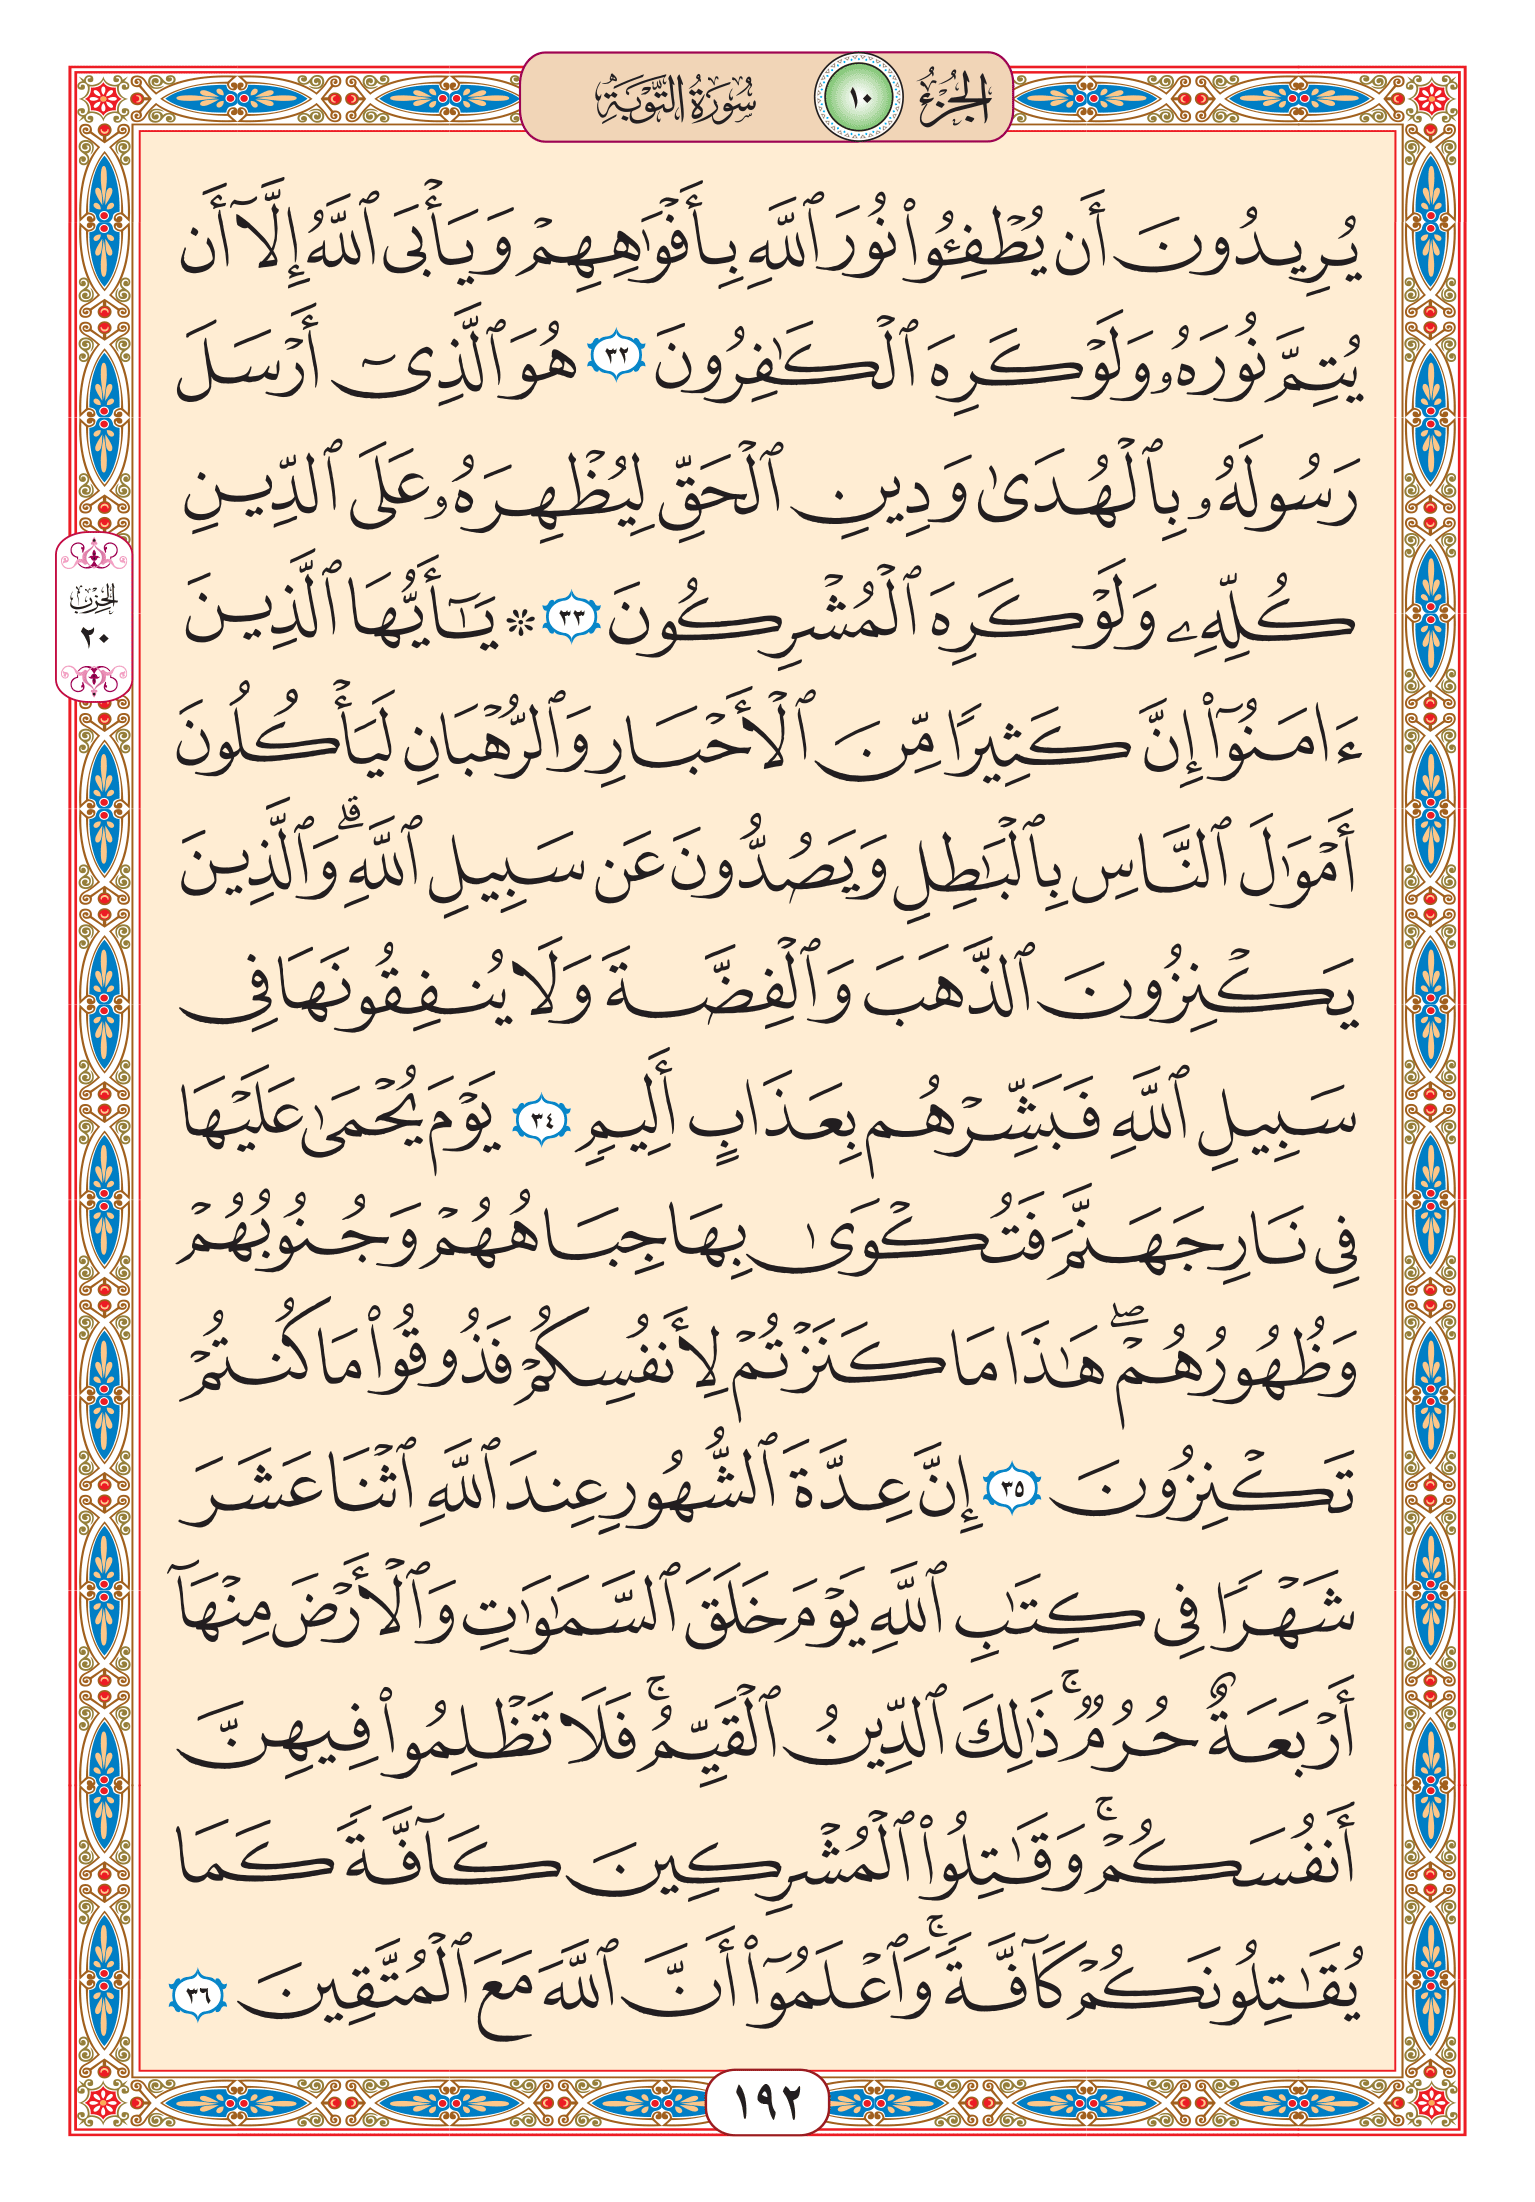 الجزء ١٠ سورة التوبة
يُرِيدُونَ أَن يُطْفِـُٔوا۟ نُورَ ٱللَّهِ بِأَفْوَٰهِهِمْ وَيَأْبَى ٱللَّهُ إِلَّآ أَن
يُتِمَّ نُورَهُۥ وَلَوْ كَرِهَ ٱلْكَـٰفِرُونَ ٣٢ هُوَ ٱلَّذِىٓ أَرْسَلَ
رَسُولَهُۥ بِٱلْهُدَىٰ وَدِينِ ٱلْحَقِّ لِيُظْهِرَهُۥ عَلَى ٱلدِّينِ
كُلِّهِۦ وَلَوْ كَرِهَ ٱلْمُشْرِكُونَ ٣٣ ۞ يَـٰٓأَيُّهَا ٱلَّذِينَ
ءَامَنُوٓا۟ إِنَّ كَثِيرًا مِّنَ ٱلْأَحْبَارِ وَٱلرُّهْبَانِ لَيَأْكُلُونَ
أَمْوَٰلَ ٱلنَّاسِ بِٱلْبَـٰطِلِ وَيَصُدُّونَ عَن سَبِيلِ ٱللَّهِ ۗ وَٱلَّذِينَ
يَكْنِزُونَ ٱلذَّهَبَ وَٱلْفِضَّةَ وَلَا يُنفِقُونَهَا فِى
سَبِيلِ ٱللَّهِ فَبَشِّرْهُم بِعَذَابٍ أَلِيمٍ ٣٤ يَوْمَ يُحْمَىٰ عَلَيْهَا
فِى نَارِ جَهَنَّمَ فَتُكْوَىٰ بِهَا جِبَاهُهُمْ وَجُنُوبُهُمْ
وَظُهُورُهُمْ ۖ هَـٰذَا مَا كَنَزْتُمْ لِأَنفُسِكُمْ فَذُوقُوا۟ مَا كُنتُمْ
تَكْنِزُونَ ٣٥ إِنَّ عِدَّةَ ٱلشُّهُورِ عِندَ ٱللَّهِ ٱثْنَا عَشَرَ
شَهْرًا فِى كِتَـٰبِ ٱللَّهِ يَوْمَ خَلَقَ ٱلسَّمَـٰوَٰتِ وَٱلْأَرْضَ مِنْهَآ
أَرْبَعَةٌ حُرُمٌ ۚ ذَٰلِكَ ٱلدِّينُ ٱلْقَيِّمُ ۚ فَلَا تَظْلِمُوا۟ فِيهِنَّ
أَنفُسَكُمْ ۚ وَقَـٰتِلُوا۟ ٱلْمُشْرِكِينَ كَآفَّةً كَمَا
يُقَـٰتِلُونَكُمْ كَآفَّةً ۚ وَٱعْلَمُوٓا۟ أَنَّ ٱللَّهَ مَعَ ٱلْمُتَّقِينَ ٣٦
الحزب
٢٠
١٩٢